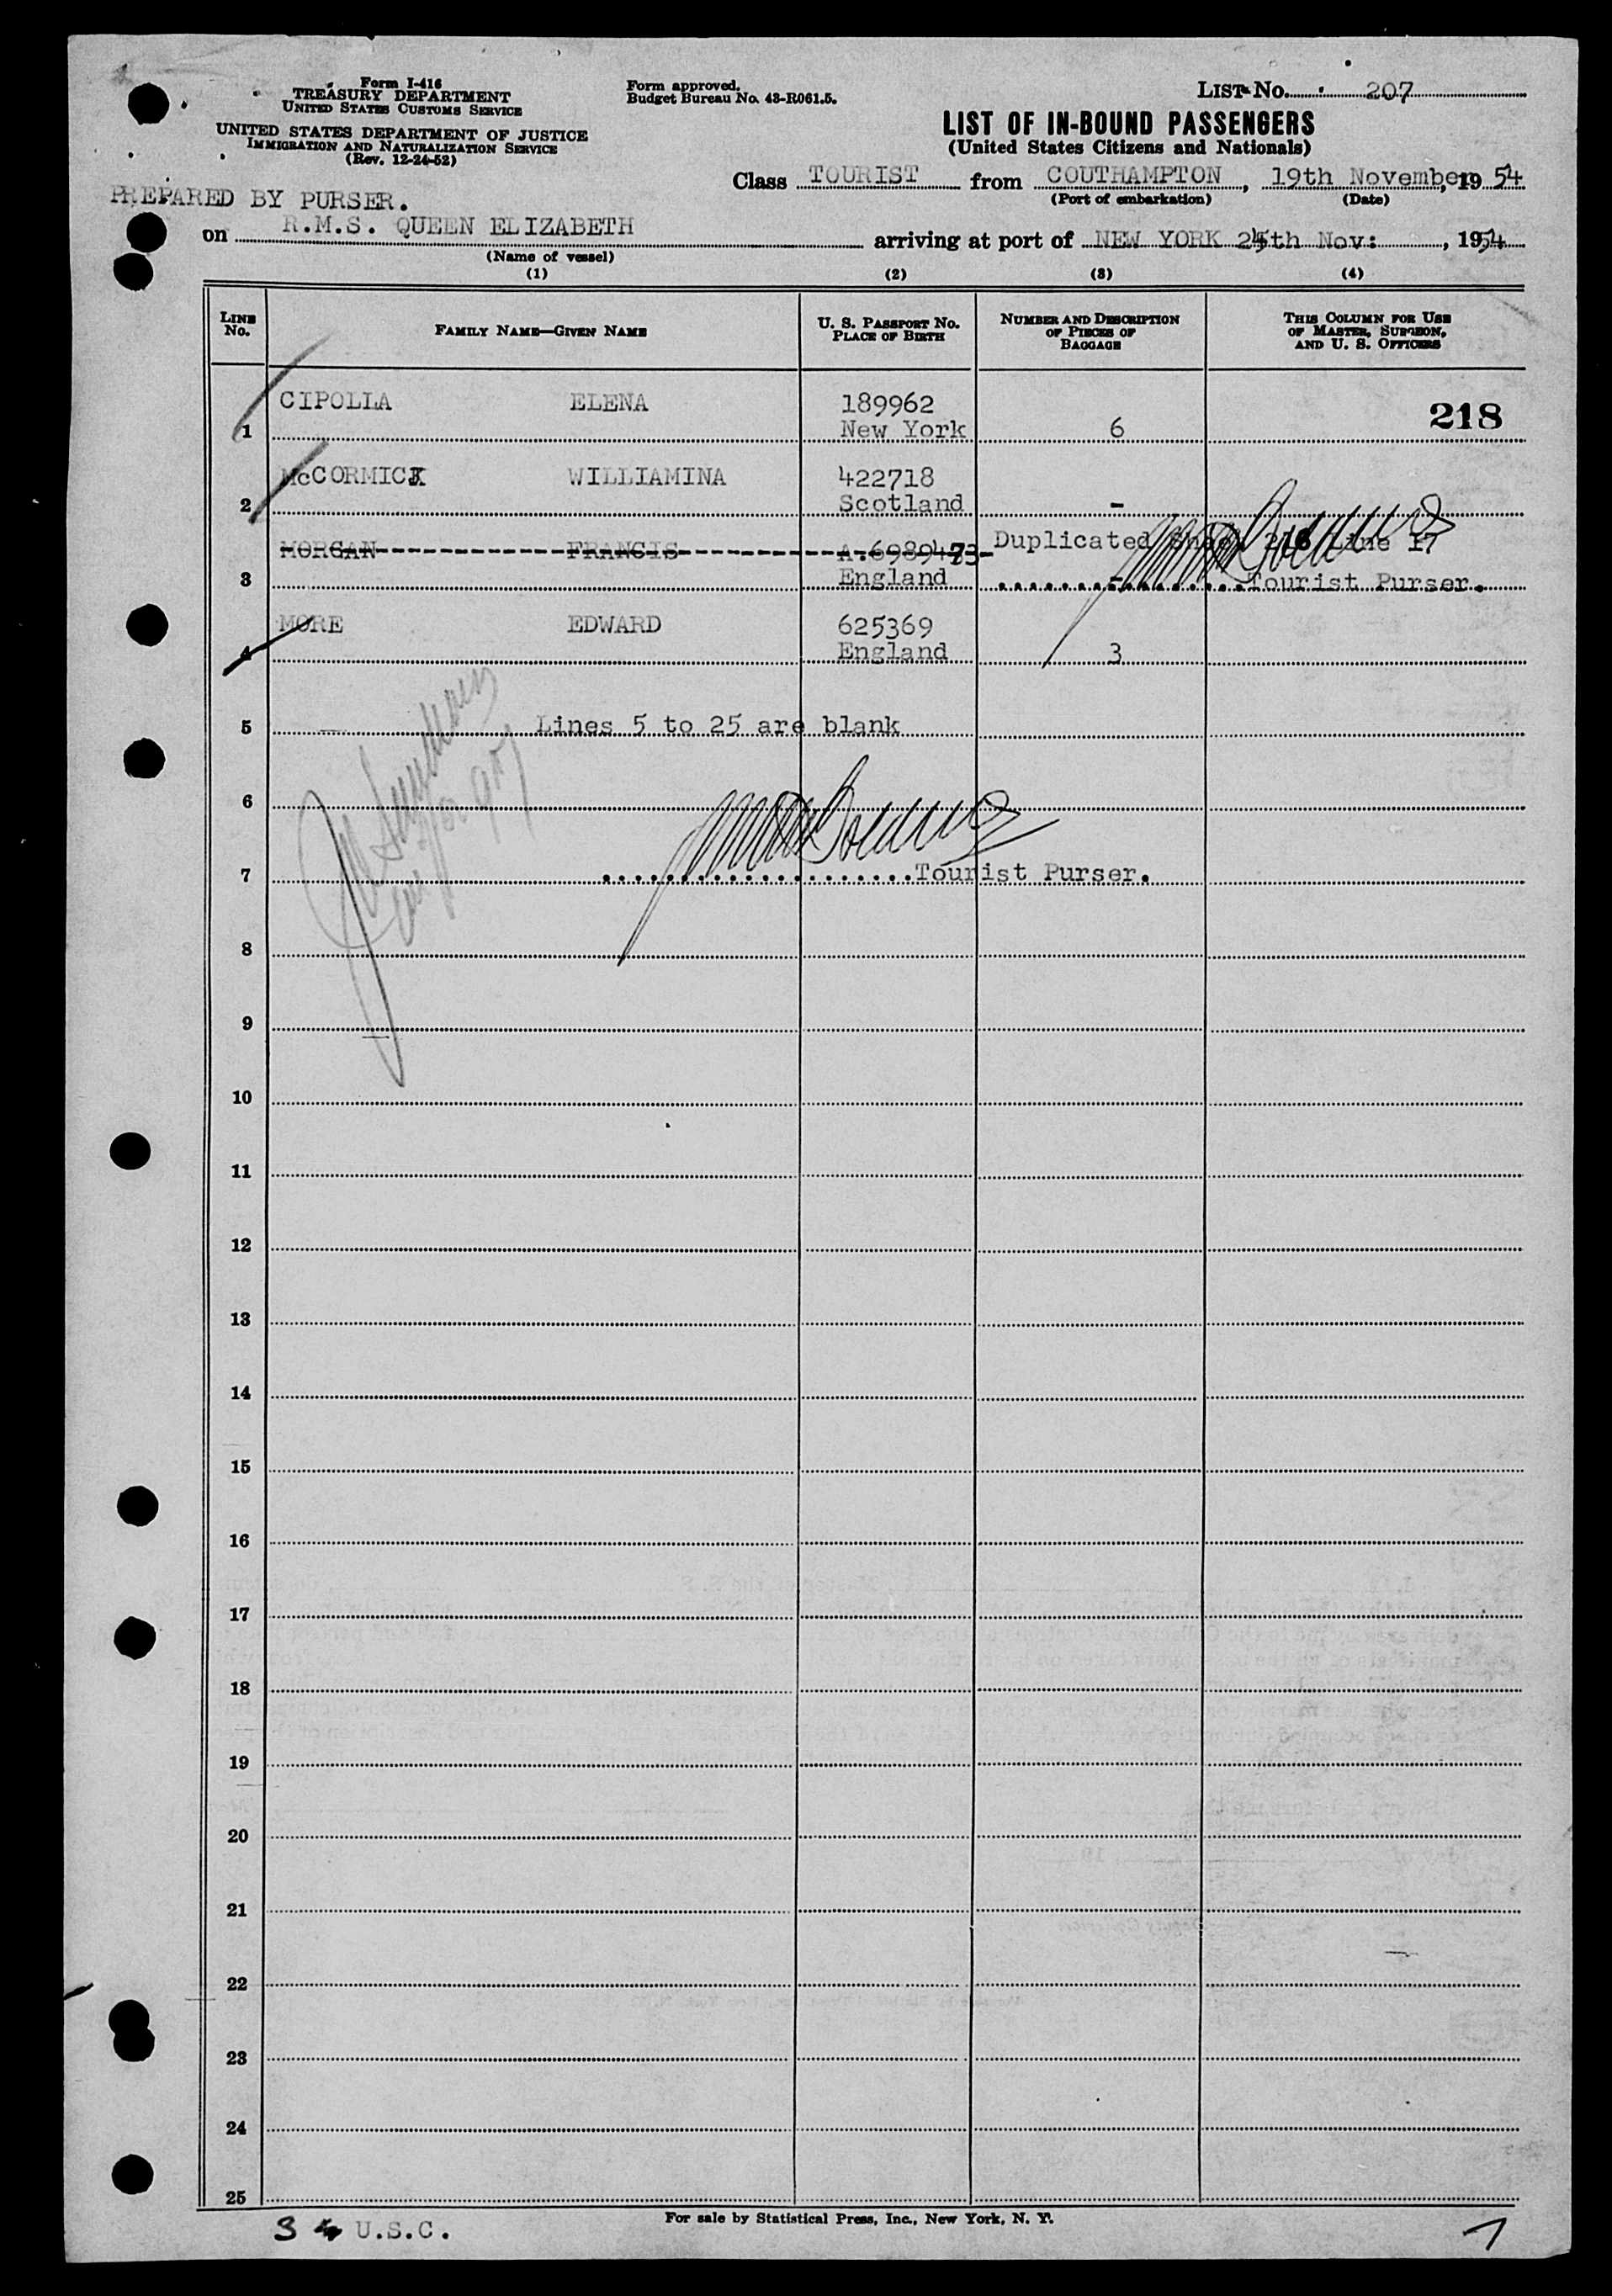 Form I-416
TREASURY DEPARTMENT
UNITED STATES CUSTOMS SERVICE
UNITED STATES DEPARTMENT OF JUSTICE
IMMIGRATION AND NATURALIZATION SERVICE
(Rev. 12-24-52)
Form approved.
Budget Bureau No. 43-R061.5.
LIST No. 207
LIST OF IN-BOUND PASSENGERS
(United States Citizens and Nationals)
Class TOURIST from COUTHAMPTON, 19th November, 1954
(Port of embarkation) (Date)
PREPARED BY PURSER.
on R.M.S. QUEEN ELIZABETH arriving at port of NEW YORK 24th Nov:, 1954
(Name of vessel)
(1) (2) (3) (4)
LINE No. FAMILY NAME—GIVEN NAME U. S. PASSPORT No. PLACE OF BIRTH NUMBER AND DESCRIPTION OF PIECES OF BAGGAGE THIS COLUMN FOR USE OF MASTER, SURGEON, AND U. S. OFFICERS
CIPOLLA ELENA 189962 218
1 New York 6
McCORMICK WILLIAMINA 422718
2 Scotland -
MORGAN FRANCIS A.6989473 Duplicated Sheet 216 Line 17
3 England - Tourist Purser.
MORE EDWARD 625369
4 England 3
5 Lines 5 to 25 are blank
6
7 Tourist Purser.
8
9
10
11
12
13
14
15
16
17
18
19
20
21
22
23
24
25
3 4 U.S.C.
For sale by Statistical Press, Inc., New York, N. Y.